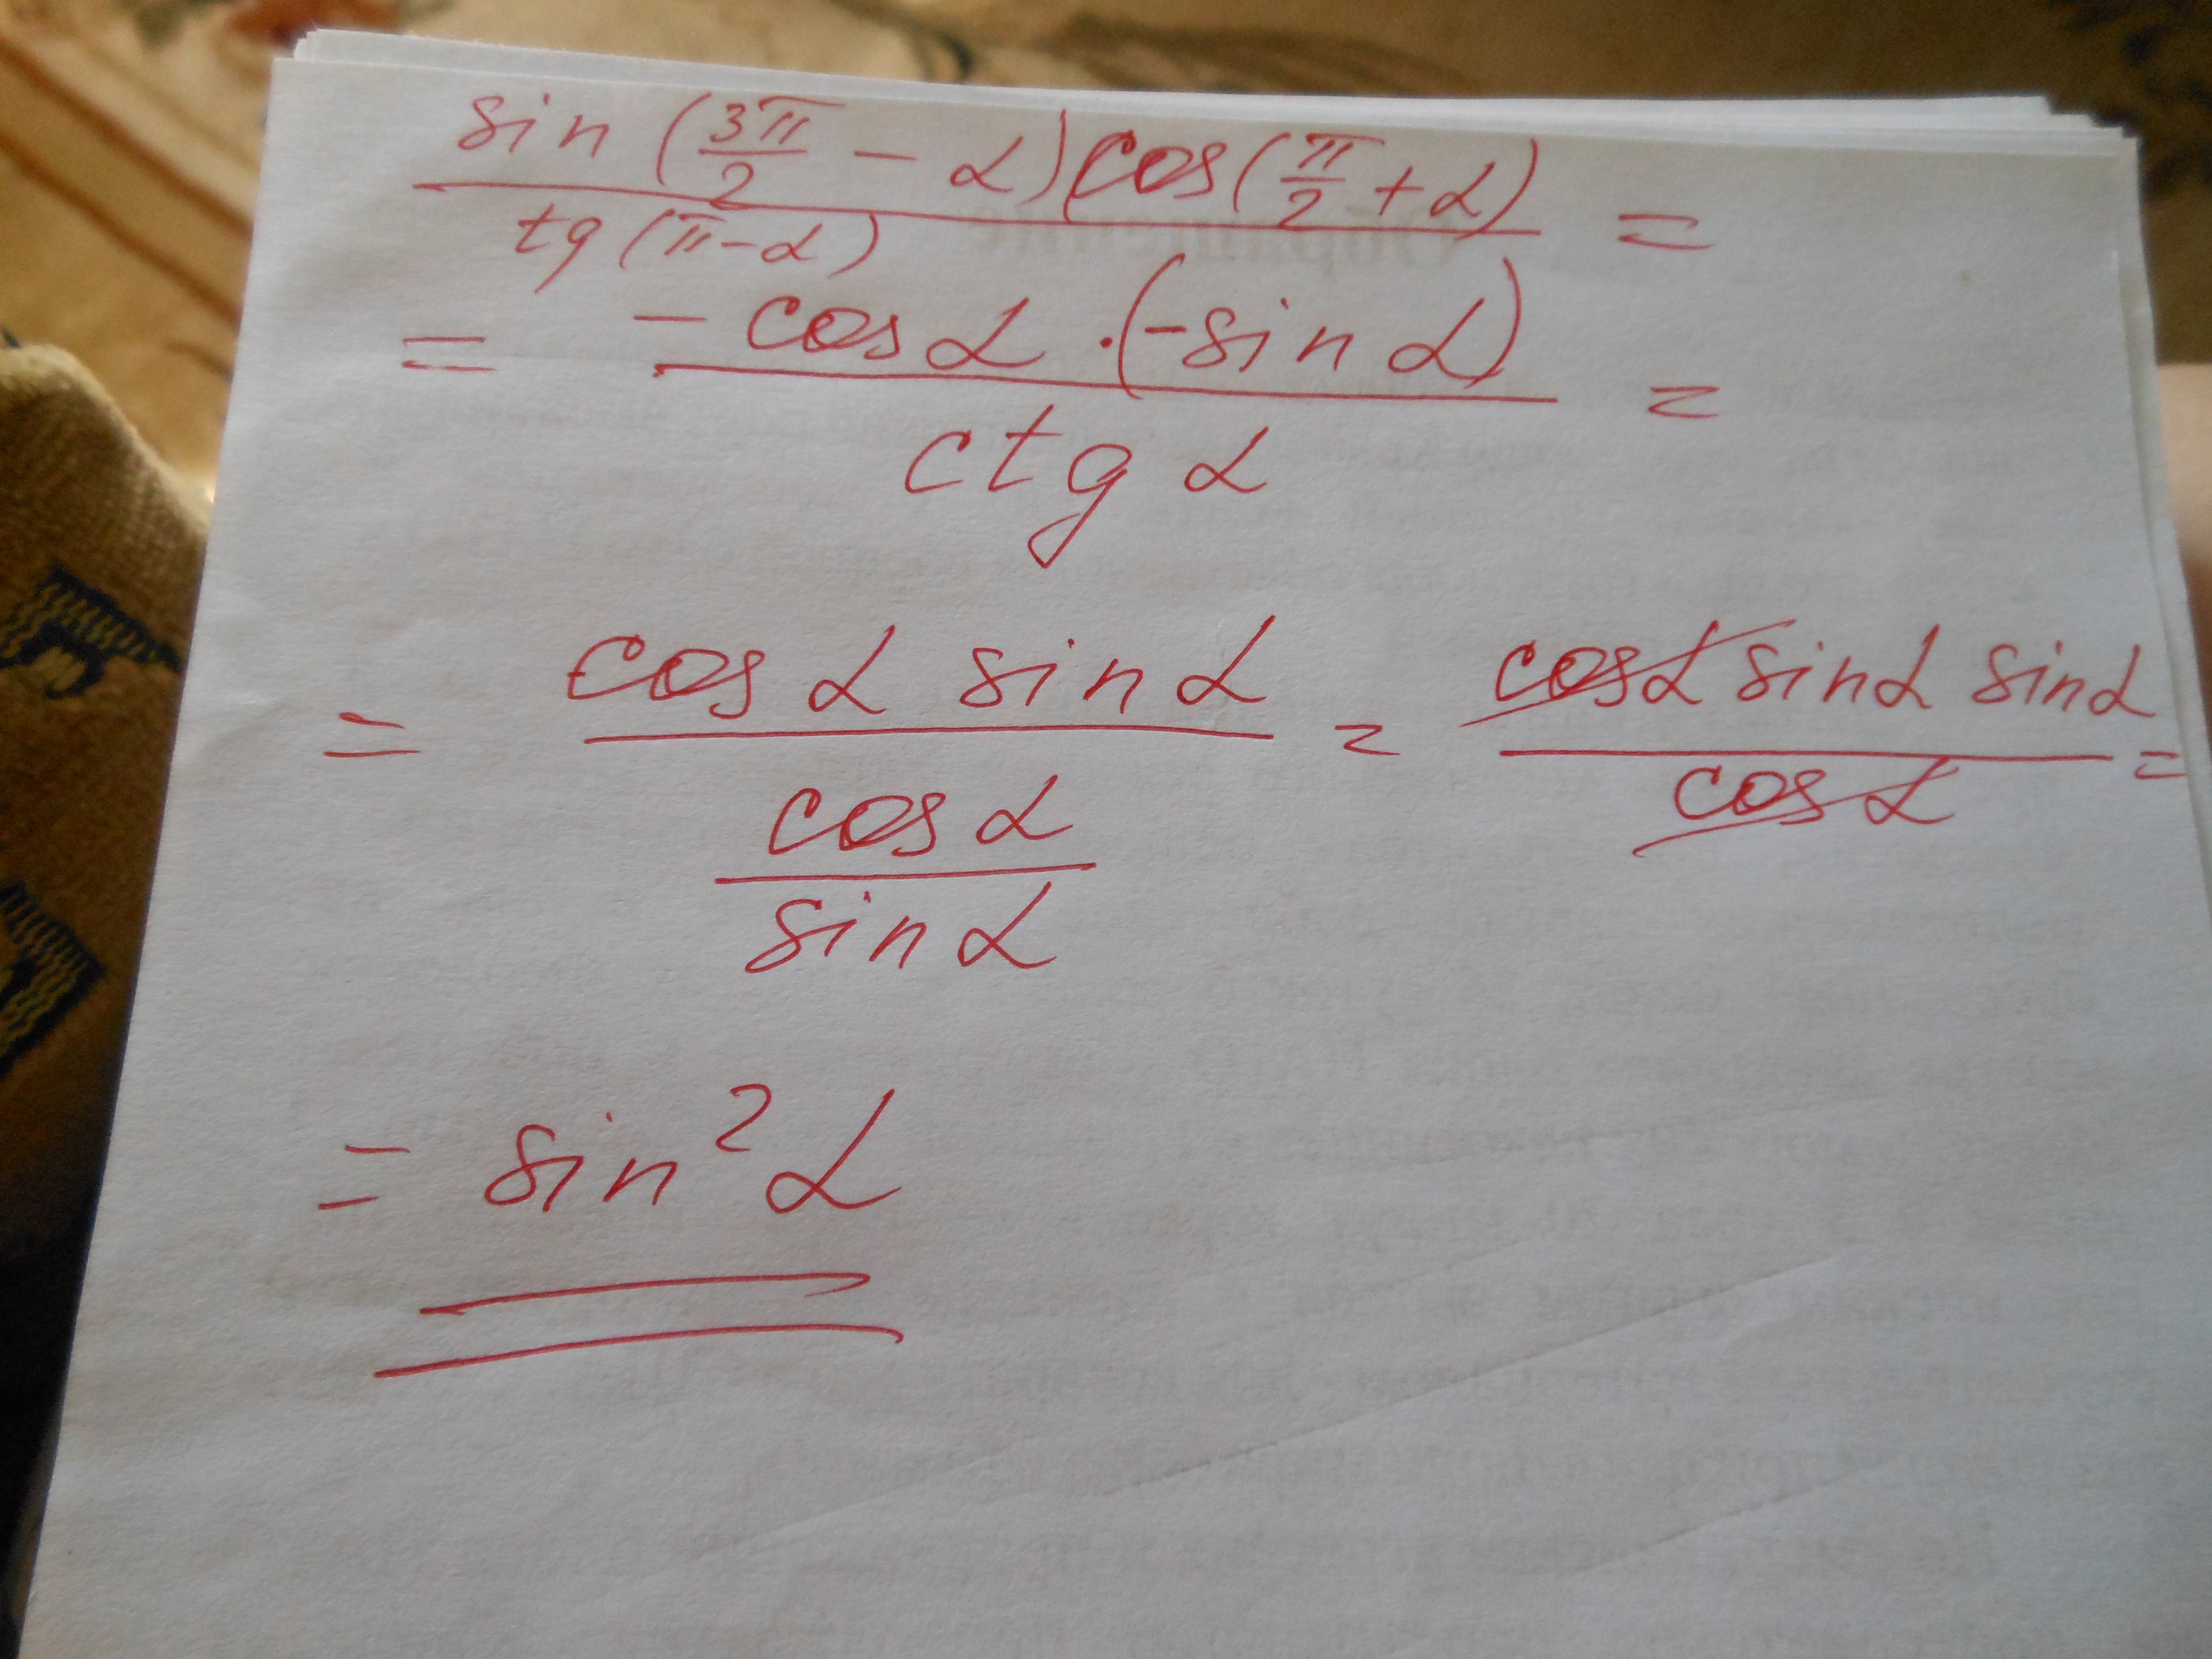 sin (3π/2 − α) cos (π/2 + α) / tg (π−α) =
= −cos α · (−sin α) / ctg α =
= cos α sin α / (cos α / sin α) = cos α sin α sin α / cos α =
= sin² α